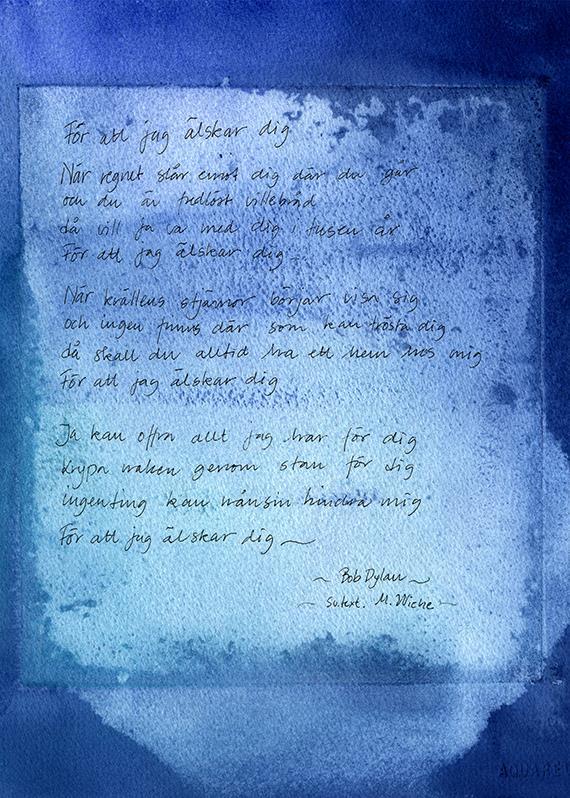 För att jag älskar dig
När regnet slår emot dig där du går
och du är fredlöst villebråd
då vill ja va med dig i tusen år
För att jag älskar dig
När kvällens stjärnor börjar visa sig
och ingen finns där som kan trösta dig
då skall du alltid ha ett hem hos mig
För att jag älskar dig
Ja kan offra allt jag har för dig
krypa naken genom stan för dig
ingenting kan nånsin hindra mig
För att jag älskar dig ~
~ Bob Dylan ~
~ Sv.text. M. Wiehe ~
AQUARE